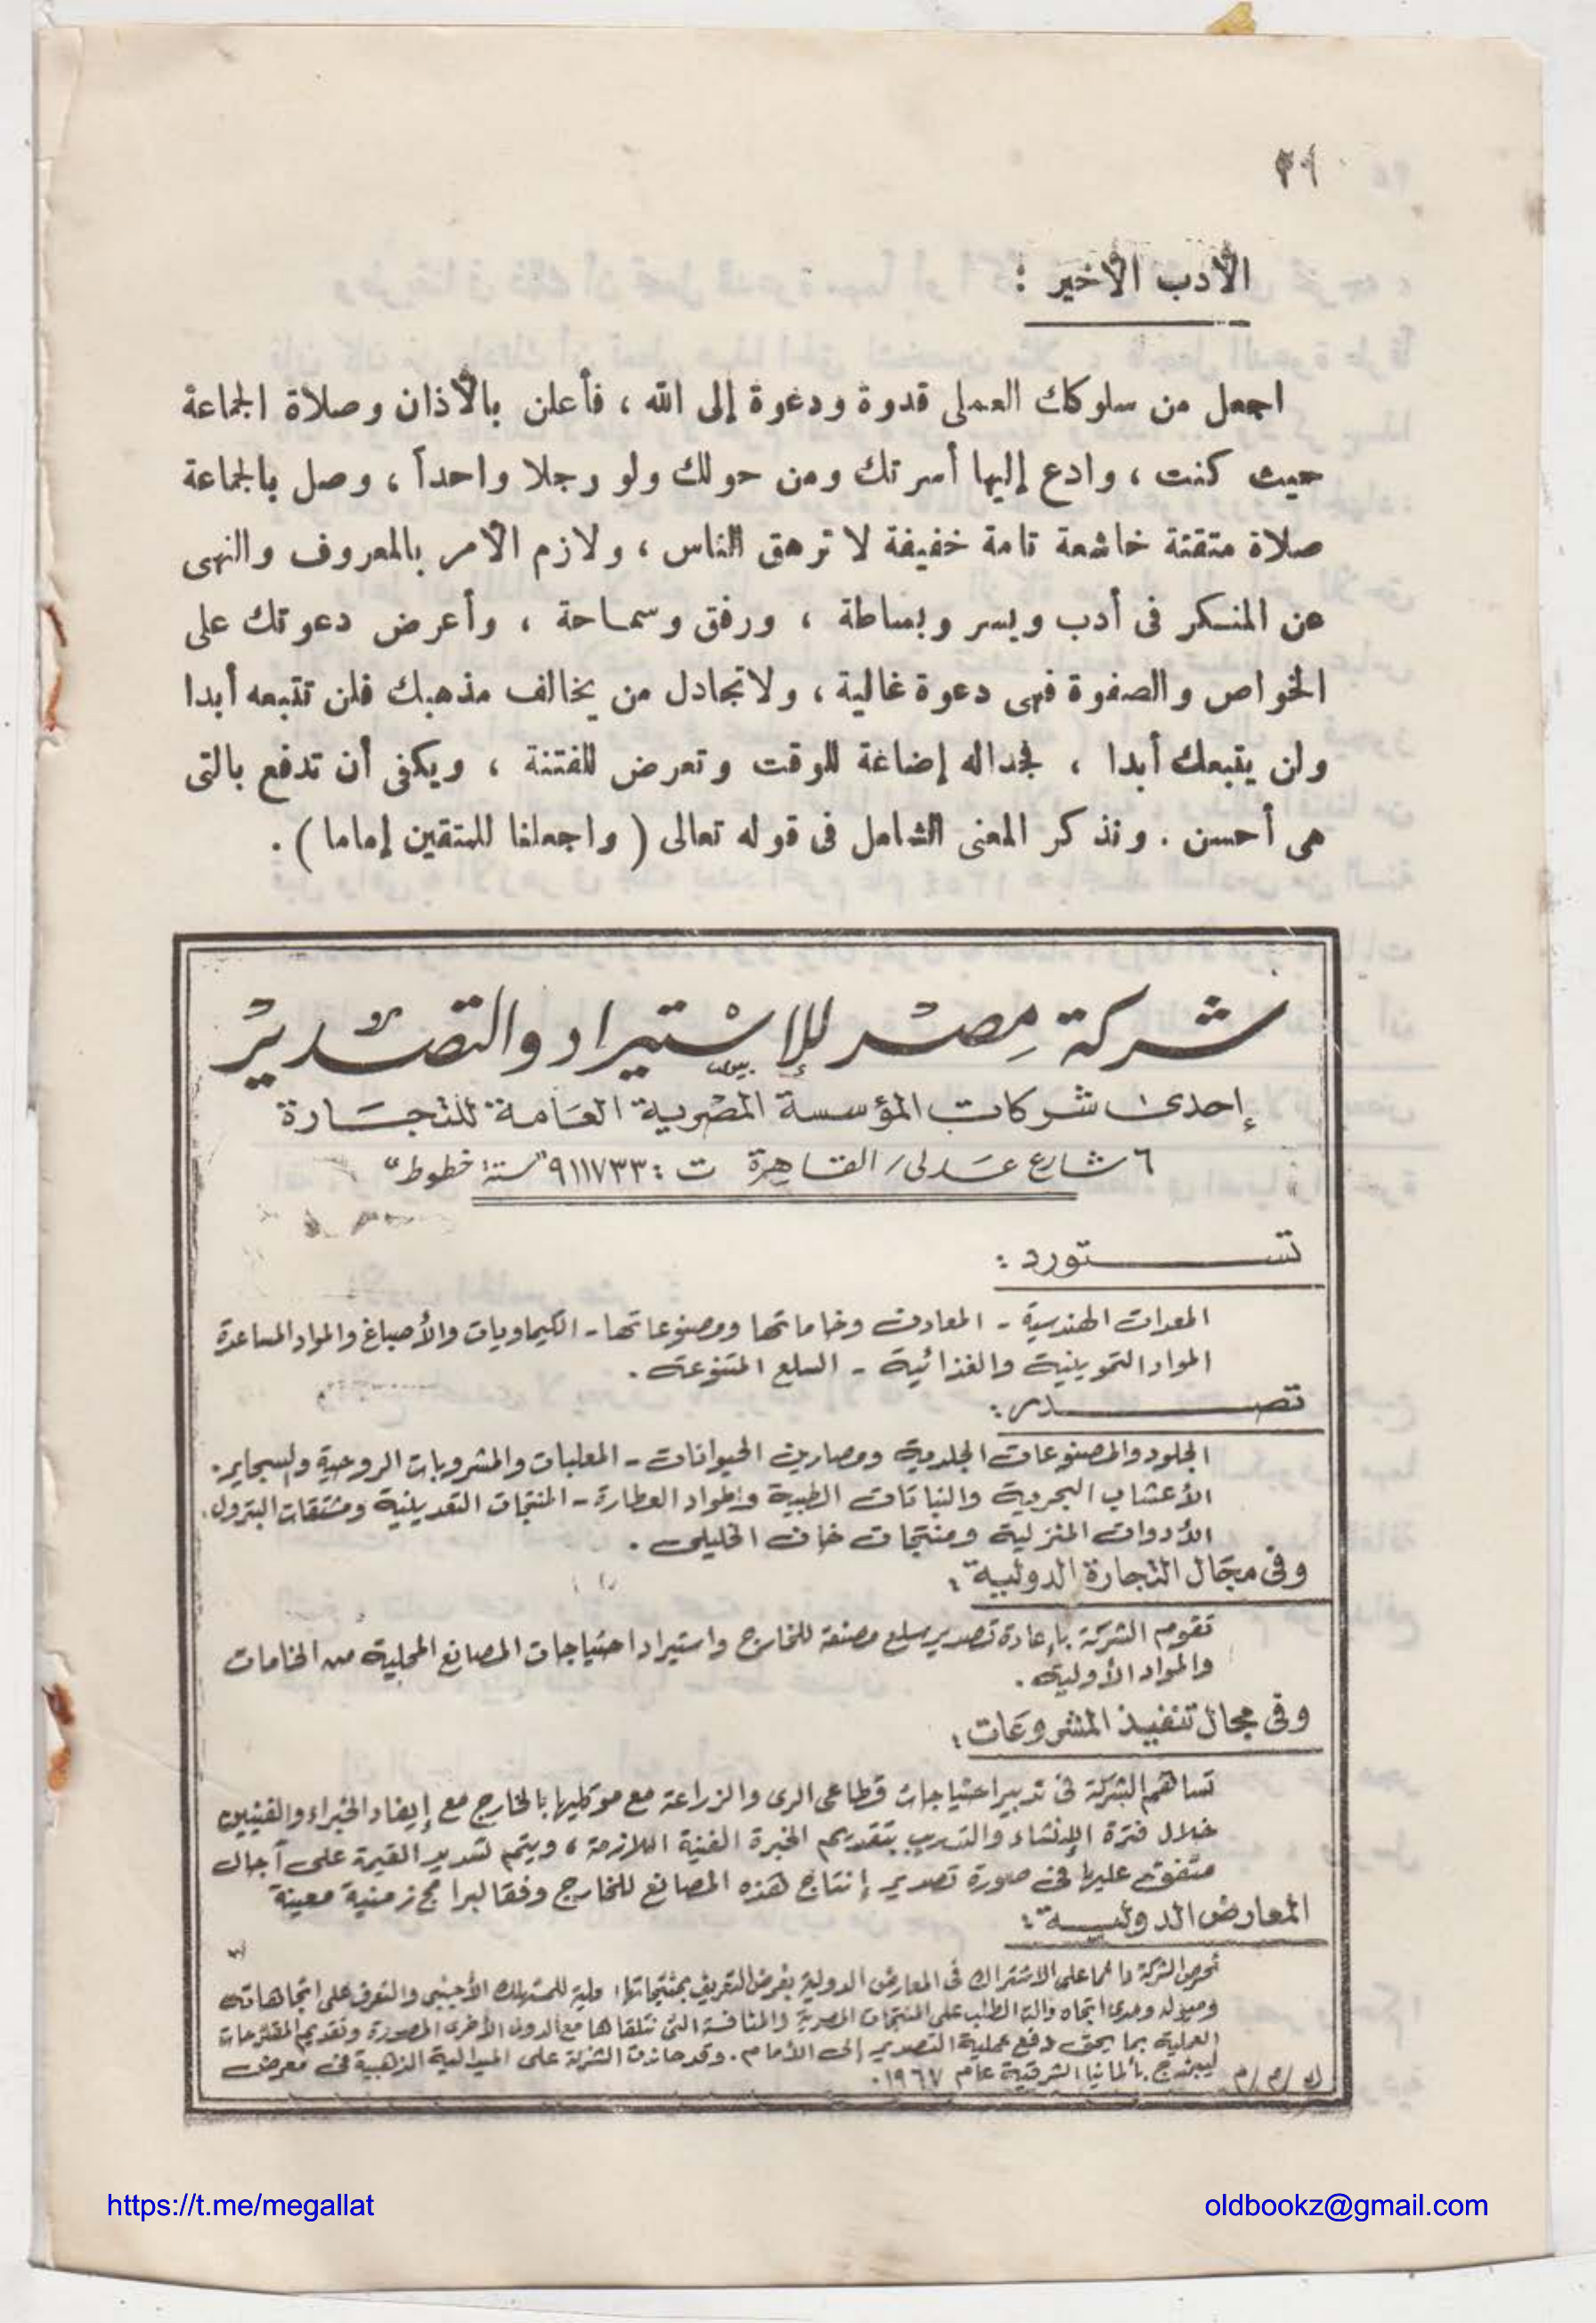 الأدب الأخير :
اجعل من سلوكك العملى قدوة ودغوة إلى الله ، فأعلن بالأذان وصلاة الجماعة
حيث كنت ، وادع إليها أسرتك ومن حولك ولو رجلا واحداً ، وصل بالجماعة
صلاة متقنة خاشعة تامة خفيفة لا ترهق الناس ، ولازم الأمر بالمعروف والنهى
عن المنكر فى أدب ويسر وبساطة ، ورفق وسماحة ، وأعرض دعوتك على
الخواص والصفوة فهى دعوة غالية ، ولا تجادل من يخالف مذهبك فلن تتبعه أبدا
ولن يتبعك أبدا ، فجداله إضاغة للوقت وتعرض للفتنة ، ويكفى أن تدفع بالتى
هى أحسن . ونذكر المعنى الشامل فى قوله تعالى ( واجعلنا للمتقين إماما ) .
شركة مصر للإستيراد والتصدير
إحدى شركات المؤسسة المصرية العامة للتجارة
٦ شارع عدلى / القاهرة ت : ٩١١٧٣٣ "ستة خطوط"
تستورد :
المعدات الهندسية - المعادن وخاماتها ومصنوعاتها - الكيماويات والأصباغ والمواد المساعدة
المواد التموينية والغذائية - السلع المتنوعة .
تصدر :
الجلود والمصنوعات الجلدية ومصارين الحيوانات - المعلبات والمشروبات الروحية والسجاير .
الأعشاب البحرية والنباتات الطبية ومواد العطارة - المنتجات التعدينية ومشتقات البترول .
الأدوات المنزلية ومنتجات خان الخليلى .
وفى مجال التجارة الدولية :
تقوم الشركة بإعادة تصدير سلع مصنعة للخارج واستيراد احتياجات المصانع المحلية من الخامات
والمواد الأولية .
وفى مجال تنفيذ المشروعات :
تساهم الشركة فى تدبير احتياجات قطاعى الرى والزراعة مع موكليها بالخارج مع إيفاد الخبراء والفنيين
خلال فترة الإنشاء والتدريب بتقديم الخبرة الفنية اللازمة ، ويتم تسديد القيمة على آجال
متفق عليها فى صورة تصدير إنتاج هذه المصانع للخارج وفقا لبرامج زمنية معينة
المعارض الدولية :
تحرص الشركة دائما على الاشتراك فى المعارض الدولية بغرض التعريف بمنتجاتها للمستهلك الأجنبى والتعرف على اتجاهاته
وميوله ومدى اتجاه الطلب على المنتجات المصرية والمنافسة التى تلقاها مع الدول الأخرى المصدرة وتقديم المقترحات
العملية بما يحقق دفع عملية التصدير إلى الأمام . وقد حازت الشركة على الميدالية الذهبية فى معرض
ليبزج بألمانيا الشرقية عام ١٩٦٧ .
https://t.me/megallat
oldbookz@gmail.com